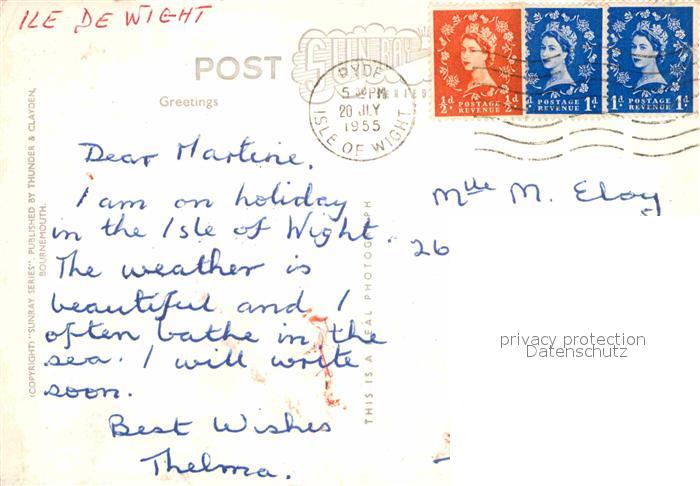 ILE DE WIGHT
POST
Greetings
SUNRAY
RYDE
5 PM
20 JLY
1955
ISLE OF WIGHT
½d ½d
POSTAGE
REVENUE
1d 1d
POSTAGE
REVENUE
1d 1d
POSTAGE
REVENUE
(COPYRIGHT) "SUNRAY SERIES". PUBLISHED BY THUNDER & CLAYDEN,
BOURNEMOUTH.
Dear Martine,
I am on holiday
in the Isle of Wight.
The weather is
beautiful and I
often bathe in the
sea. I will write
soon.
Best Wishes
Thelma.
THIS IS A REAL PHOTOGRAPH
Mlle M. Eloy
26
privacy protection
Datenschutz